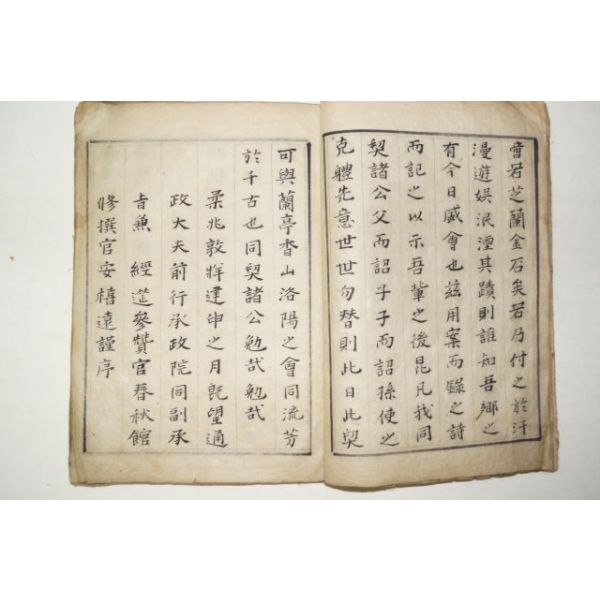 嘗若芝蘭金石矣若乃付之於汗
漫遊娯泯湮其蹟則誰知吾鄉之
有今日盛會也玆用案而錄之詩
而記之以示吾輩之後昆凡我同
契諸公父而詔子子而詔孫使之
克軆先意世世勿替則此日此契
可與蘭亭香山洛陽之會同流芳
於千古也同契諸公勉哉勉哉
柔兆敦牂建申之月旣望通
政大夫前行承政院同副承
旨兼 經筵參贊官春秋館
修撰官安禧遠謹序